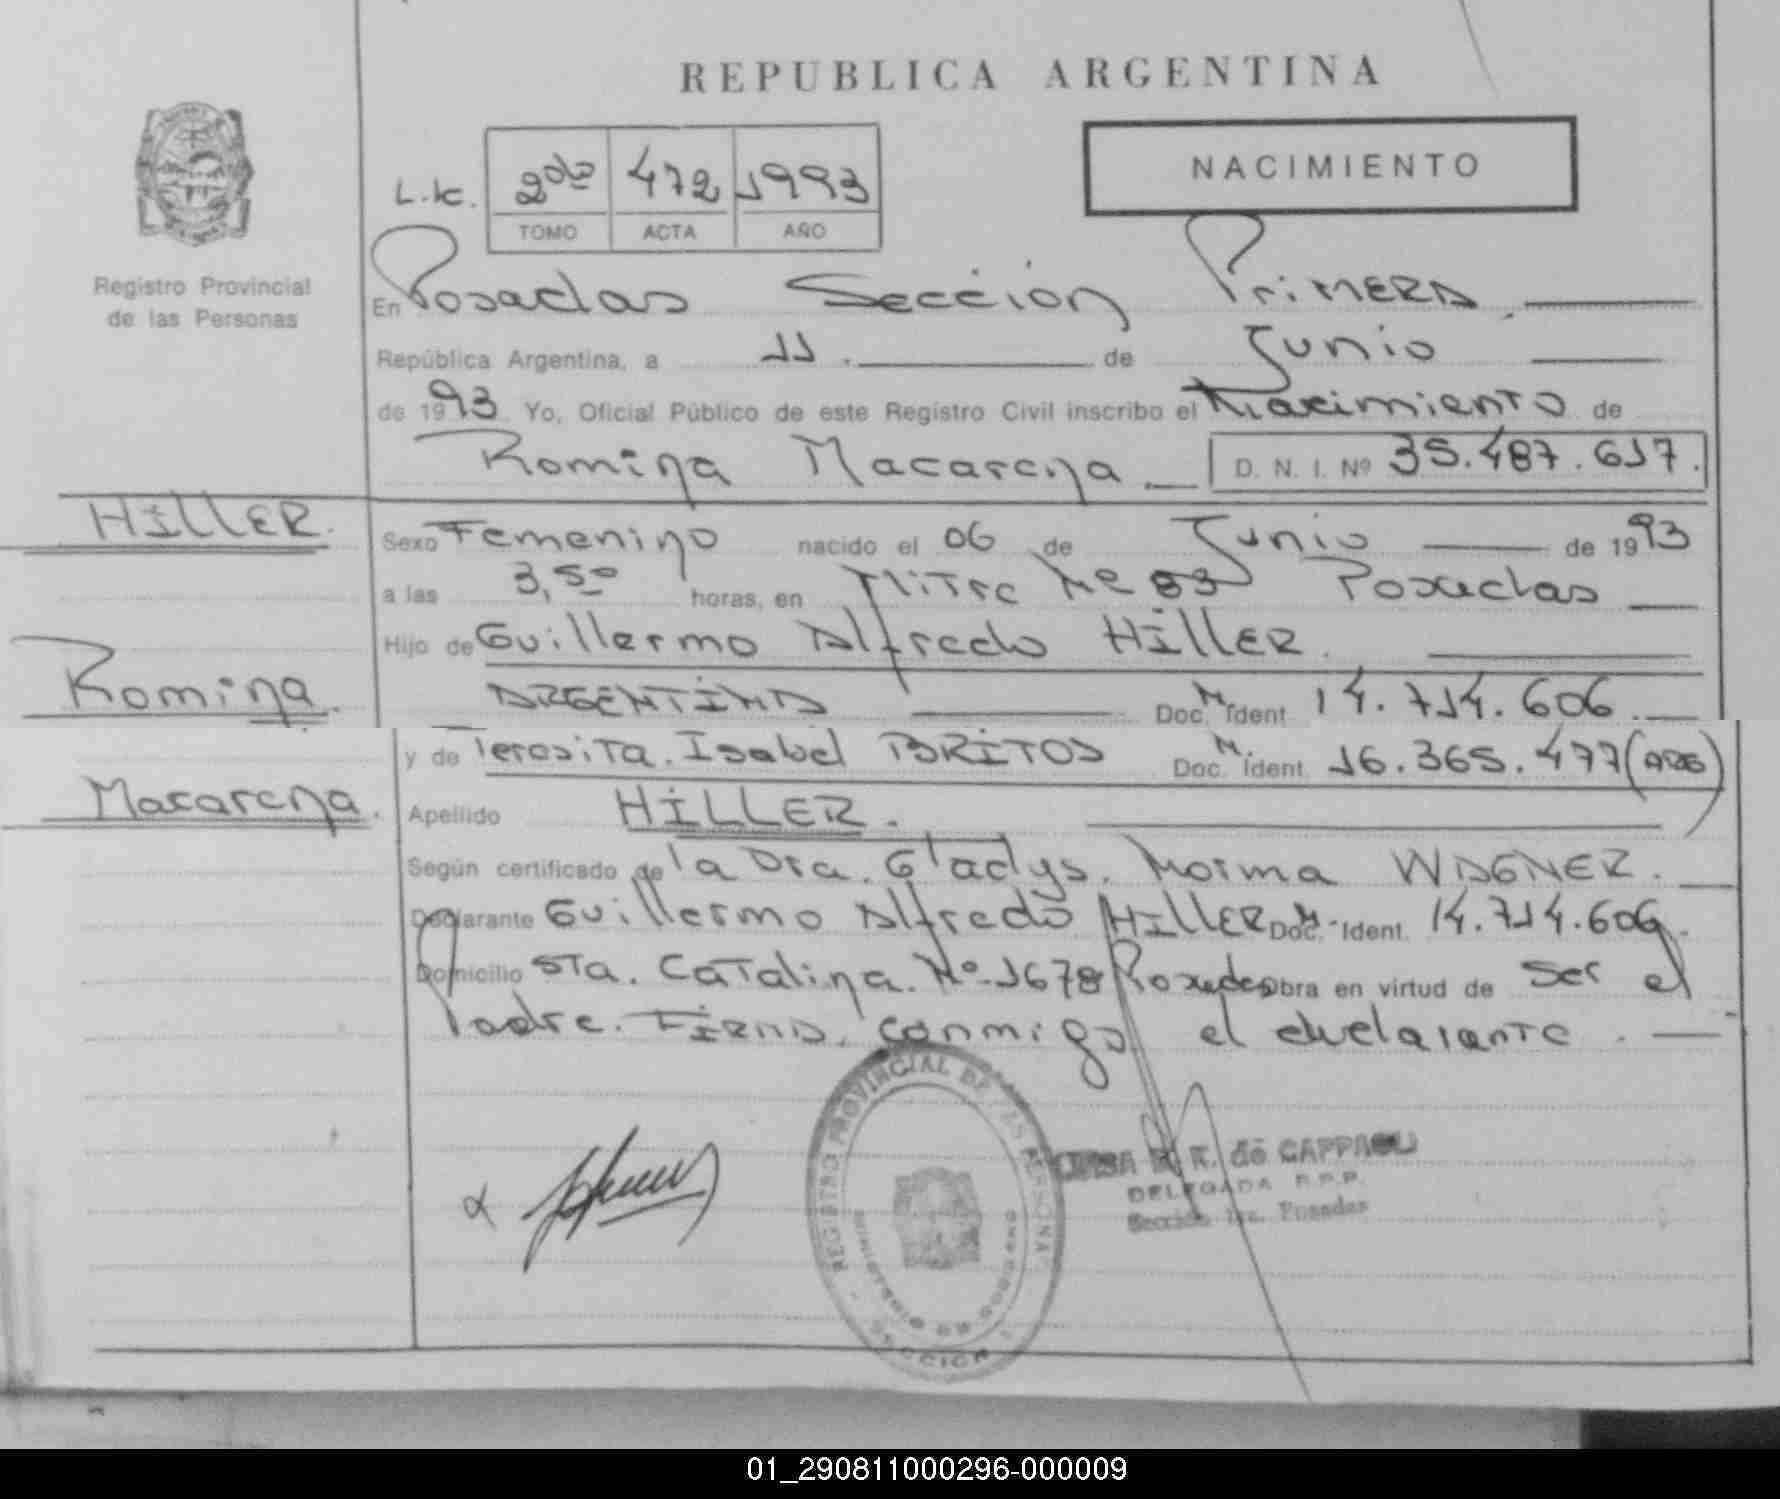 REPUBLICA ARGENTINA
NACIMIENTO
L.K. 2do 472 1993
TOMO ACTA AÑO
Registro Provincial
de las Personas
En Posadas Sección Primera
República Argentina, a 11. de Junio
de 1993 Yo, Oficial Público de este Registro Civil inscribo el Nacimiento de
Romina Macarena D. N. I. Nº 35.487.617.
HILLER.
Sexo Femenino nacido el 06 de Junio de 1993
a las 3,50 horas, en Mitre Nº 83 Posadas
Hijo de Guillermo Alfredo HILLER.
Romina.
ARGENTINA Doc. M. Ident. 14.714.606.
y de Teresita Isabel BRITOS Doc. M. Ident. 16.365.477 (ARG)
Macarena.
Apellido HILLER.
Según certificado de la Dra. Gladys Norma WAGNER.
Declarante Guillermo Alfredo HILLER Doc. M. Ident. 14.714.606.
Domicilio Sta. Catalina Nº 1678 Posadas Obra en virtud de Ser el
Padre. FIRMA conmigo el declarante.
REGISTRO PROVINCIAL DE LAS PERSONAS
MINISTERIO DE GOBIERNO
SECCION
R. de CAPPAGLI
DELEGADA R.P.P.
Sección 1ra. Posadas
01_290811000296-000009